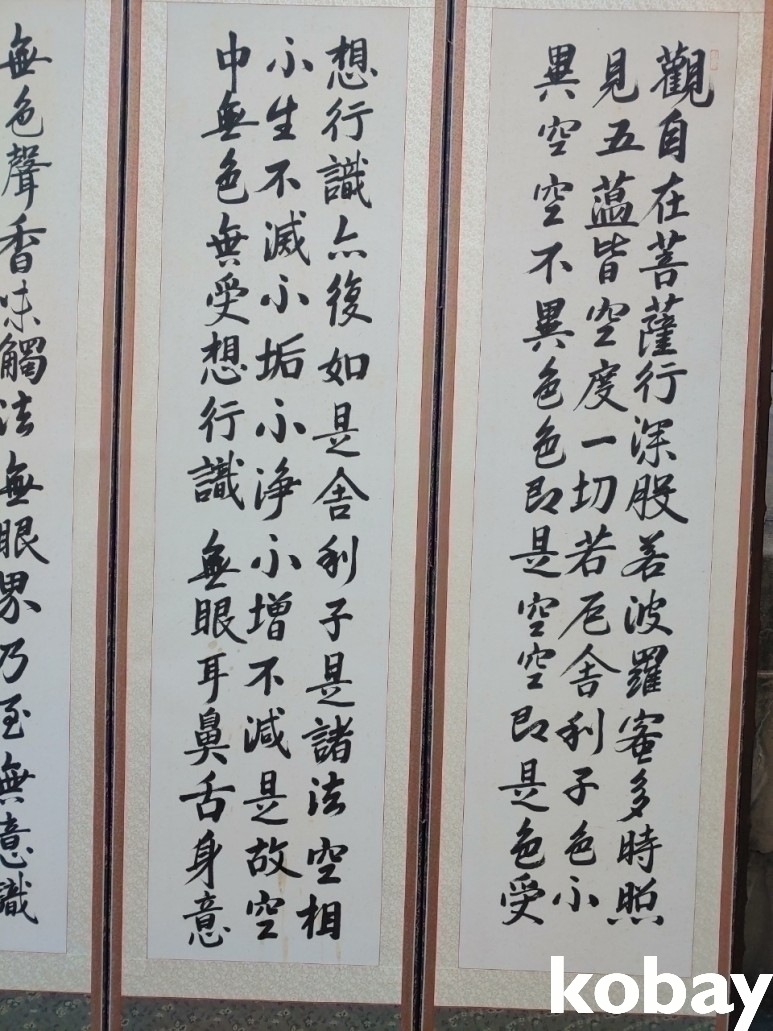 觀自在菩薩行深般若波羅蜜多時照
見五蘊皆空度一切苦厄舍利子色不
異空空不異色色即是空空即是色受
想行識亦復如是舍利子是諸法空相
不生不滅不垢不淨不增不減是故空
中無色無受想行識無眼耳鼻舌身意
無色聲香味觸法無眼界乃至無意識
kobay